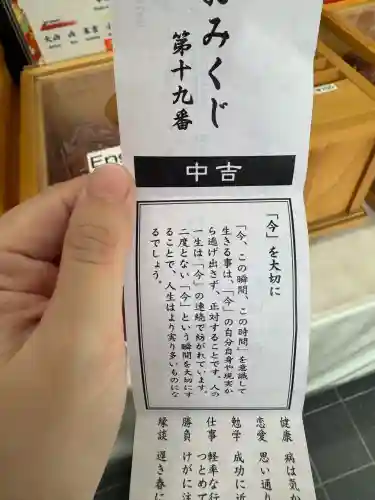 おみくじ
第十九番
中吉
「今」を大切に
「今、この瞬間、この時間」を意識して
生きる事は、「今」の自分自身や現実か
ら逃げ出さず、正対することです。人の
一生は「今」の連続で紡がれています。
二度とない「今」という瞬間を大切にす
ることで、人生はより実り多いものにな
るでしょう。
健康 病は気か
恋愛 思い通り
勉学 成功に近
仕事 軽率な行
つとめて
勝負 けがに注
縁談 遅き春に